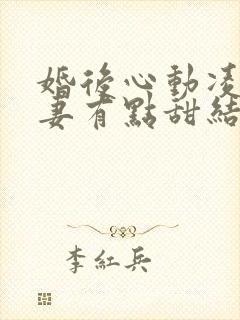 婚後心動凌
妻有點甜結
李紅兵